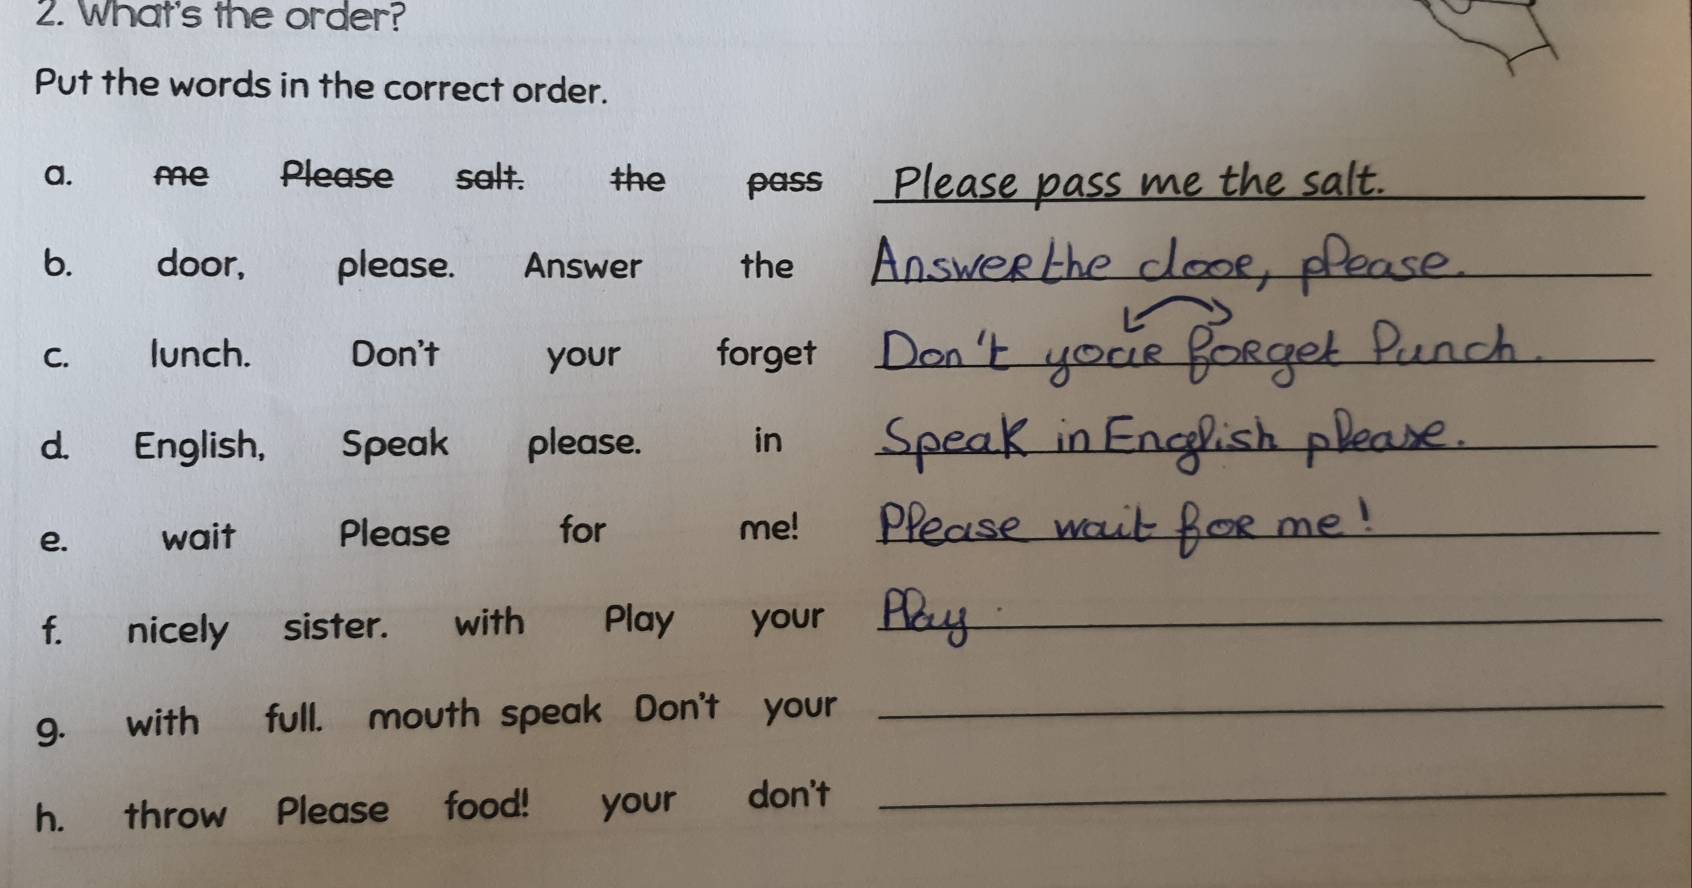 2. What's the order?
Put the words in the correct order.
a. me Please salt. the pass Please pass me the salt.
b. door, please. Answer the Answer the door, please.
c. lunch. Don't your forget Don't your forget lunch.
d. English, Speak please. in Speak in English please.
e. wait Please for me! Please wait for me!
f. nicely sister. with Play your Play
g. with full. mouth speak Don't your
h. throw Please food! your don't